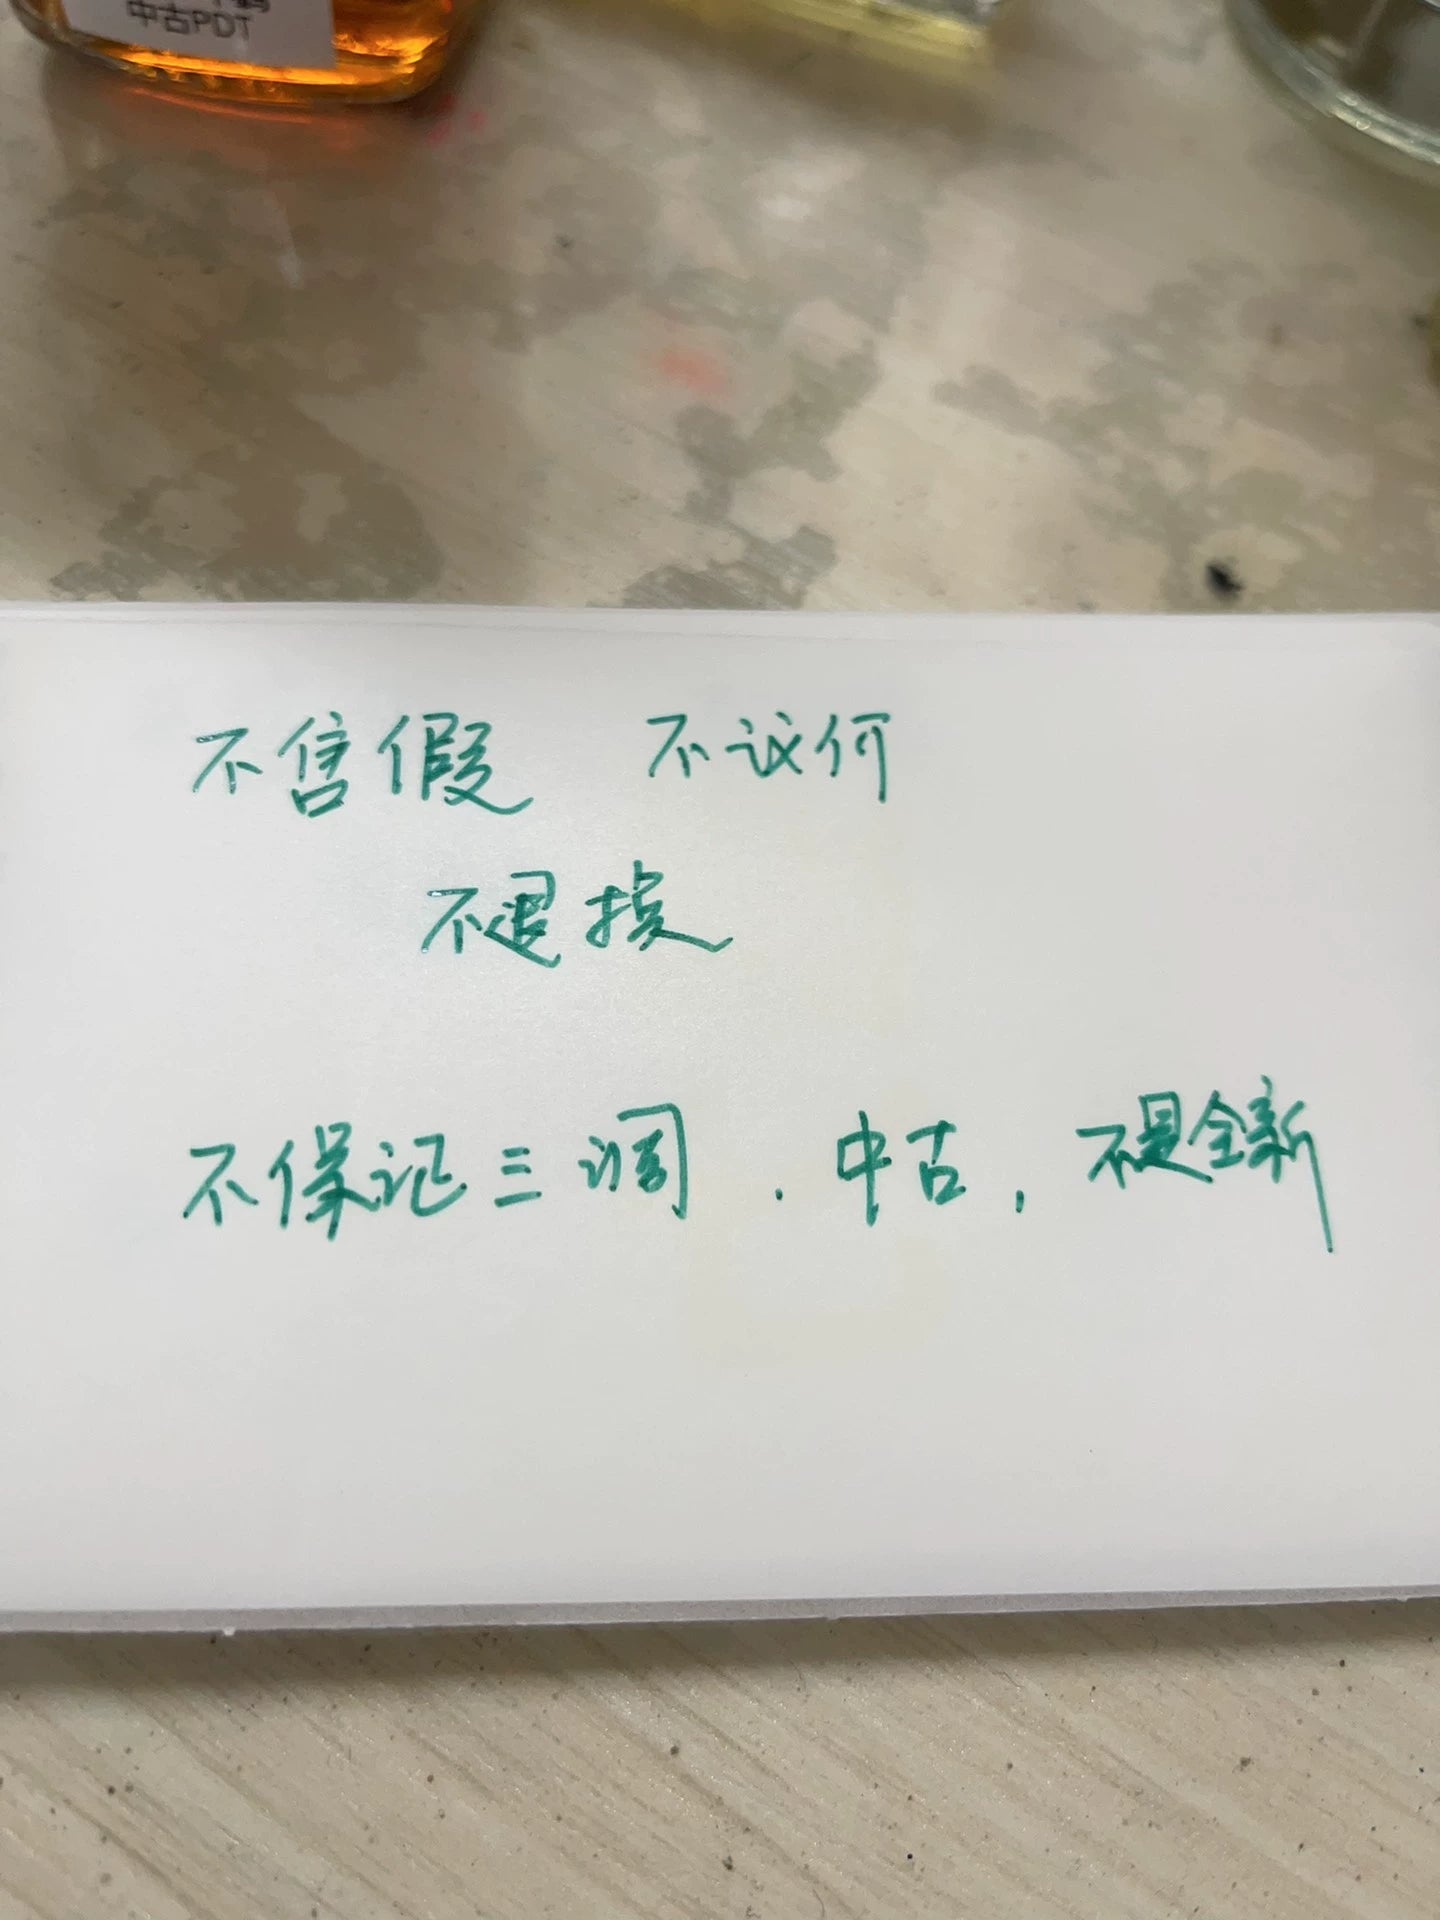 中古PDT
不售假 不议何
不退换
不保证三调．中古，不是全新